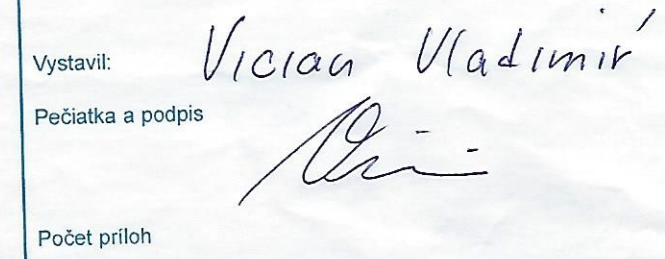 Vystavil: Vician Vladimír
Pečiatka a podpis
Počet príloh